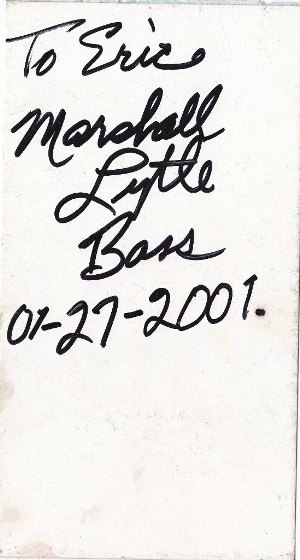 To Eric
Marshall
Lytle
Bass
01-27-2001.